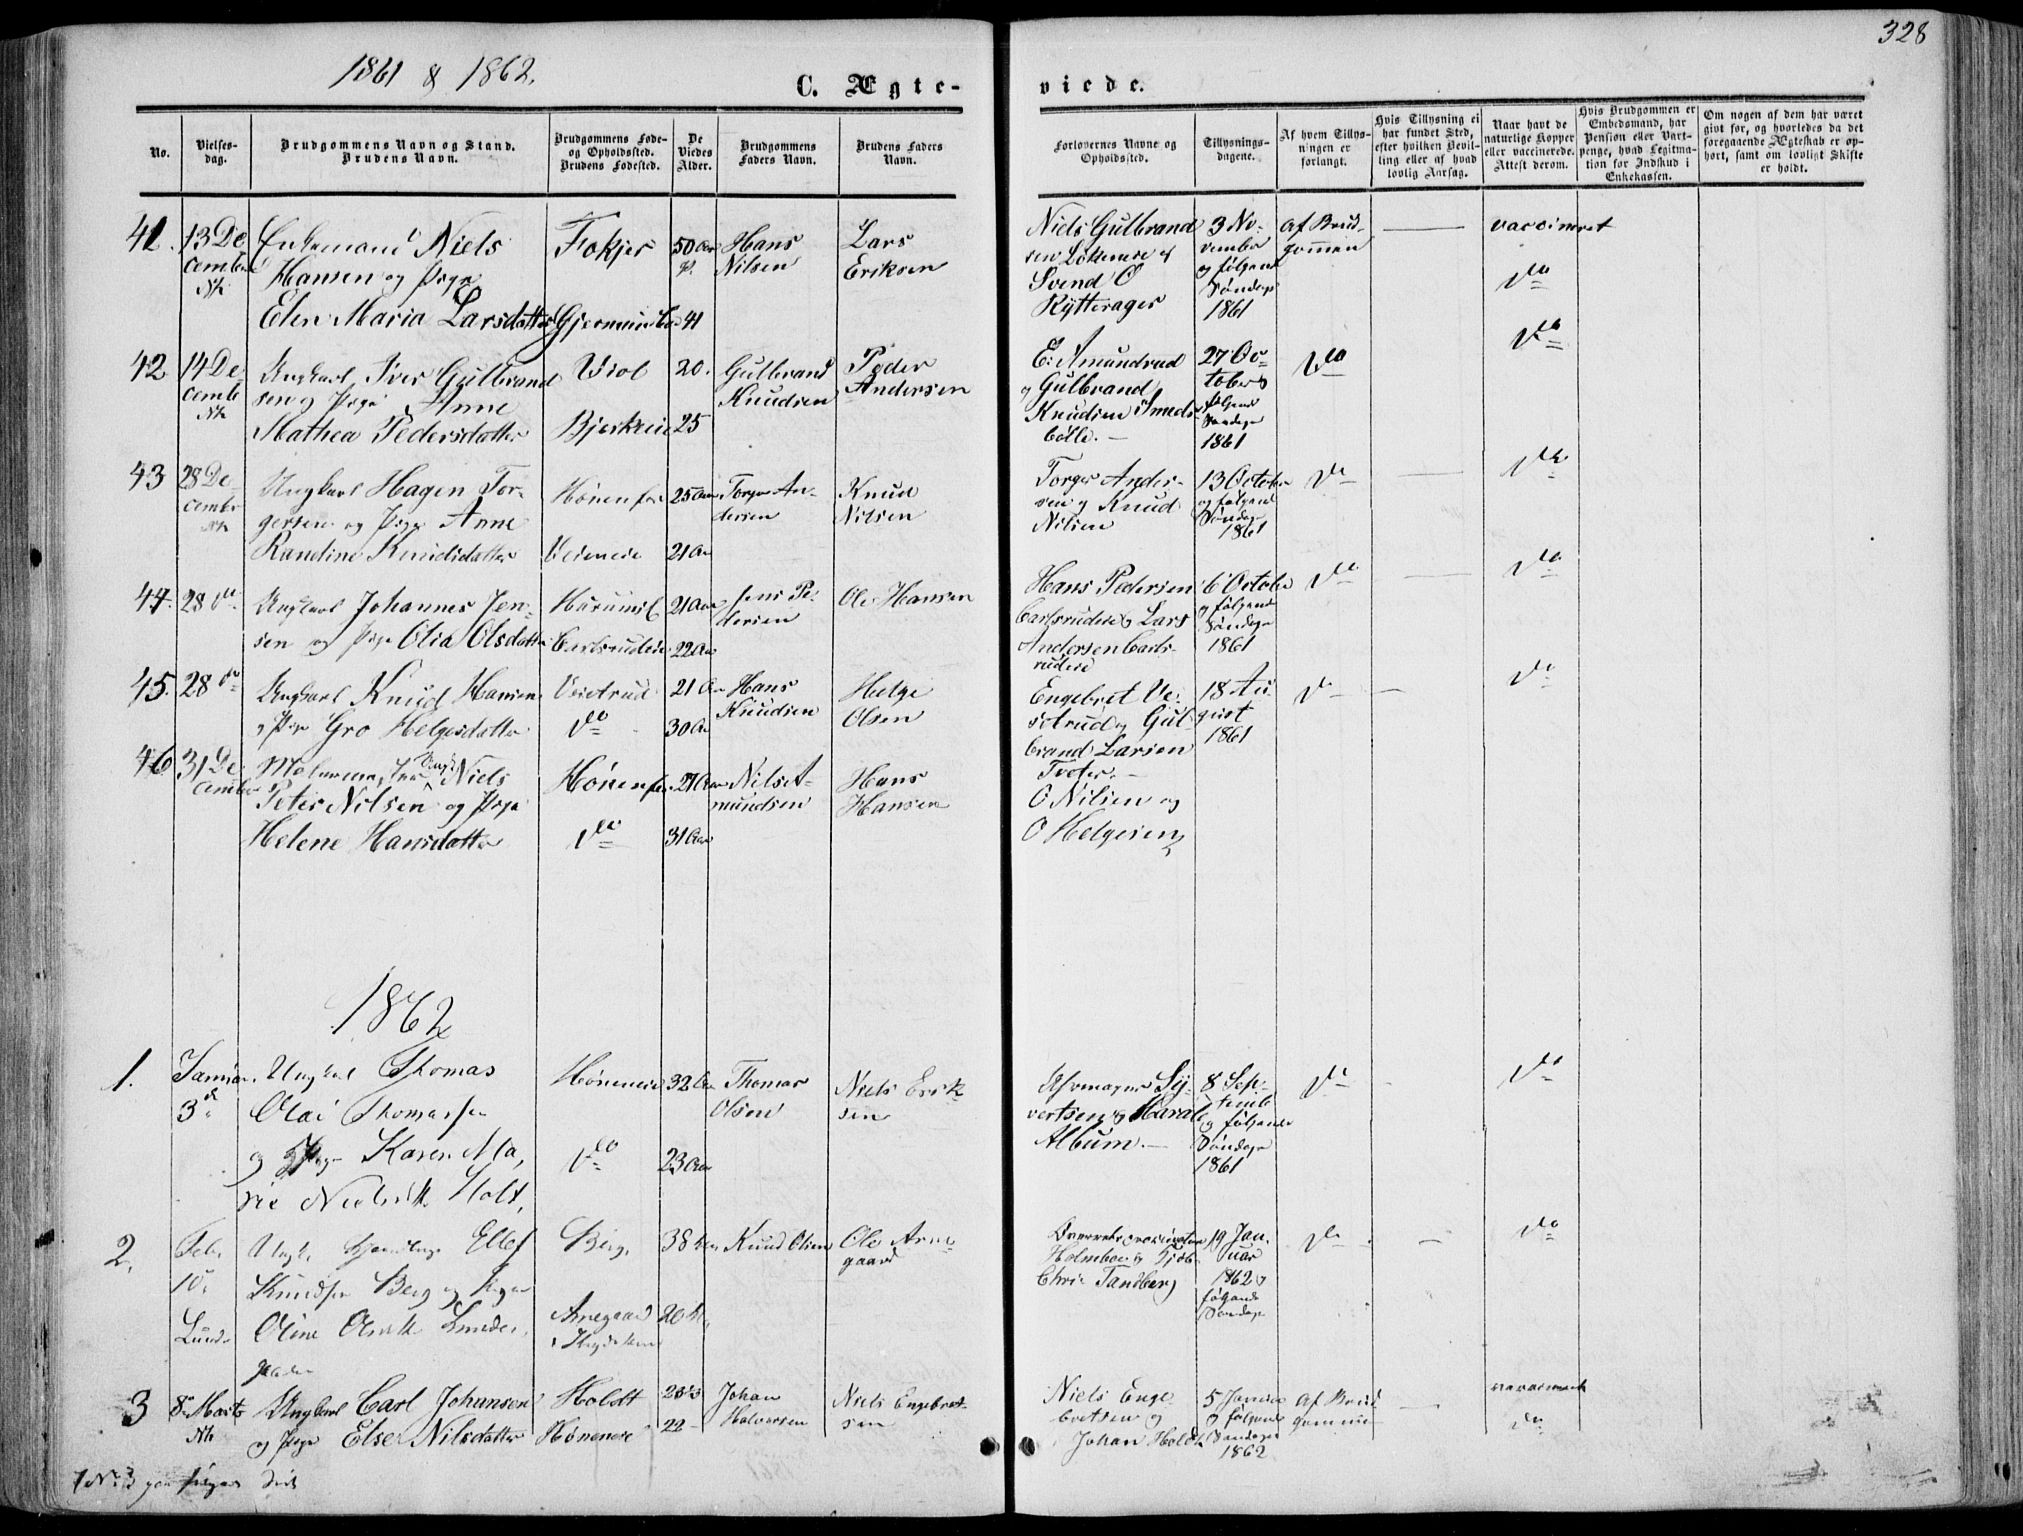 328
1861 & 1862.
C. Ægte-
viede.
No.
Vielses-
dag.
Brudgommens Navn og Stand.
Brudens Navn.
Brudgommens Føde-
og Opholdssted.
Brudens Fødested.
De
Viedes
Alder.
Brudgommens
Faders Navn.
Brudens Faders
Navn.
Forlovernes Navne og
Opholdssted.
Tillysnings-
dagene.
Af hvem Tillys-
ningen er
forlangt.
Hvis Tillysning ei
har fundet Sted,
efter hvilken Bevil-
ling eller af hvad
lovlig Aarsag.
Naar havt de
naturlige Kopper
eller vaccinerede.
Attest derom.
Hvis Brudgommen er
Embedsmand, har
Pension eller Vart-
penge, hvad Legitima-
tion for Indskud i
Enkekassen.
Om nogen af dem har været
givt før, og hvorledes da det
foregaaende Ægteskab er op-
hørt, samt om lovligt Skifte
er holdt.
41. 13 De
cember
Enkemand Niels
Hansen og Pige
Elen Maria Larsdatter
50 Aar
41
Hans
Nilsen
Lars
Eriksen
Niels Gulbrand
sen
Svend O
Rytterager
3 No-
vember
og følgende
Søndage
1861
Af Brud-
gommen
vaccineret
do
42 14 De
cemb
Ungkarl Iver Gulbrand
sen og Pige Anne
Mathea Pedersdatter
Viol
20.
25
Gulbrand
Knudsen
Peder
Andersen
E: Amundrud
og Gulbrand
Knudsen
27 Oc-
tober og
følgende
Søndage
1861
do
do
43 28 De-
cember
Ungkarl Hagen Tor-
gersen og Pige Anne
Randine Knudsdatter
Hønenfos
25 Aar
21 Aar
Torger An-
dersen
Knud
Nilsen
Torger Ander-
sen og Knud
Nilsen
13 October
og følgende
Søndage
1861
do
do
44. 28 do
Ungkarl Johannes Jen-
sen og Pige Olia Olsdatter
21 Aar
22 Aar
Jens Pe-
dersen
Ole Hansen
Hans Pedersen
Carlsrudeie og Lars
Andersen Carls-
rudeie
6 October
og følgende
Søndage
1861
do
do
45. 28 do
Ungkarl Knud Hansen
og Pige Gro Helgesdatter
do
21 Aar
30 Aar
Hans
Knudsen
Helge
Olsen
Engebret Ve-
strud og Gul-
brand Larsen
Tveter.
18 Au-
gust
1861
do
do
46 31 De-
cember
Niels
Peter Nilsen og Pige
Helene Hansdatter
Hønenfos
do
31 Aar
Nils A-
mundsen
Hans
Hansen
O Nilsen og
O Helgesen
1862
1.
Januar
3
Ungkarl Thomas
Olai Thomassen
og Pige Karen Ma-
rie Holt,
Høneneie
do
32 Aar
23 Aar
Thomas
Olsen
Niels Erik
sen
Sy-
vertsen og Harald
Album.
8 Sep-
temb
og følgende
Søndage
1861
do
do
2.
Feb.
10
Ellef
Knudsen Berg og Pige
Oline
Berg.
38 Aar
20 A.
Knud Olsen
Ole Arne
gaard
Holmboe og
Chris Tandberg
19 Jan.
uar
1862 og
følgende
Søndage
do
do
3
8 Marts
Ungkarl Carl Johansen
og Pige Else Nilsdatter
Holdt
Høneneie
22
Johan
Halvorsen
Niels Engebret-
sen
Niels Enge
bretsen og
Johan Holdt
5 Januar
og følgende
Søndage
1862
Af Brud
gommen
vaccineret
do